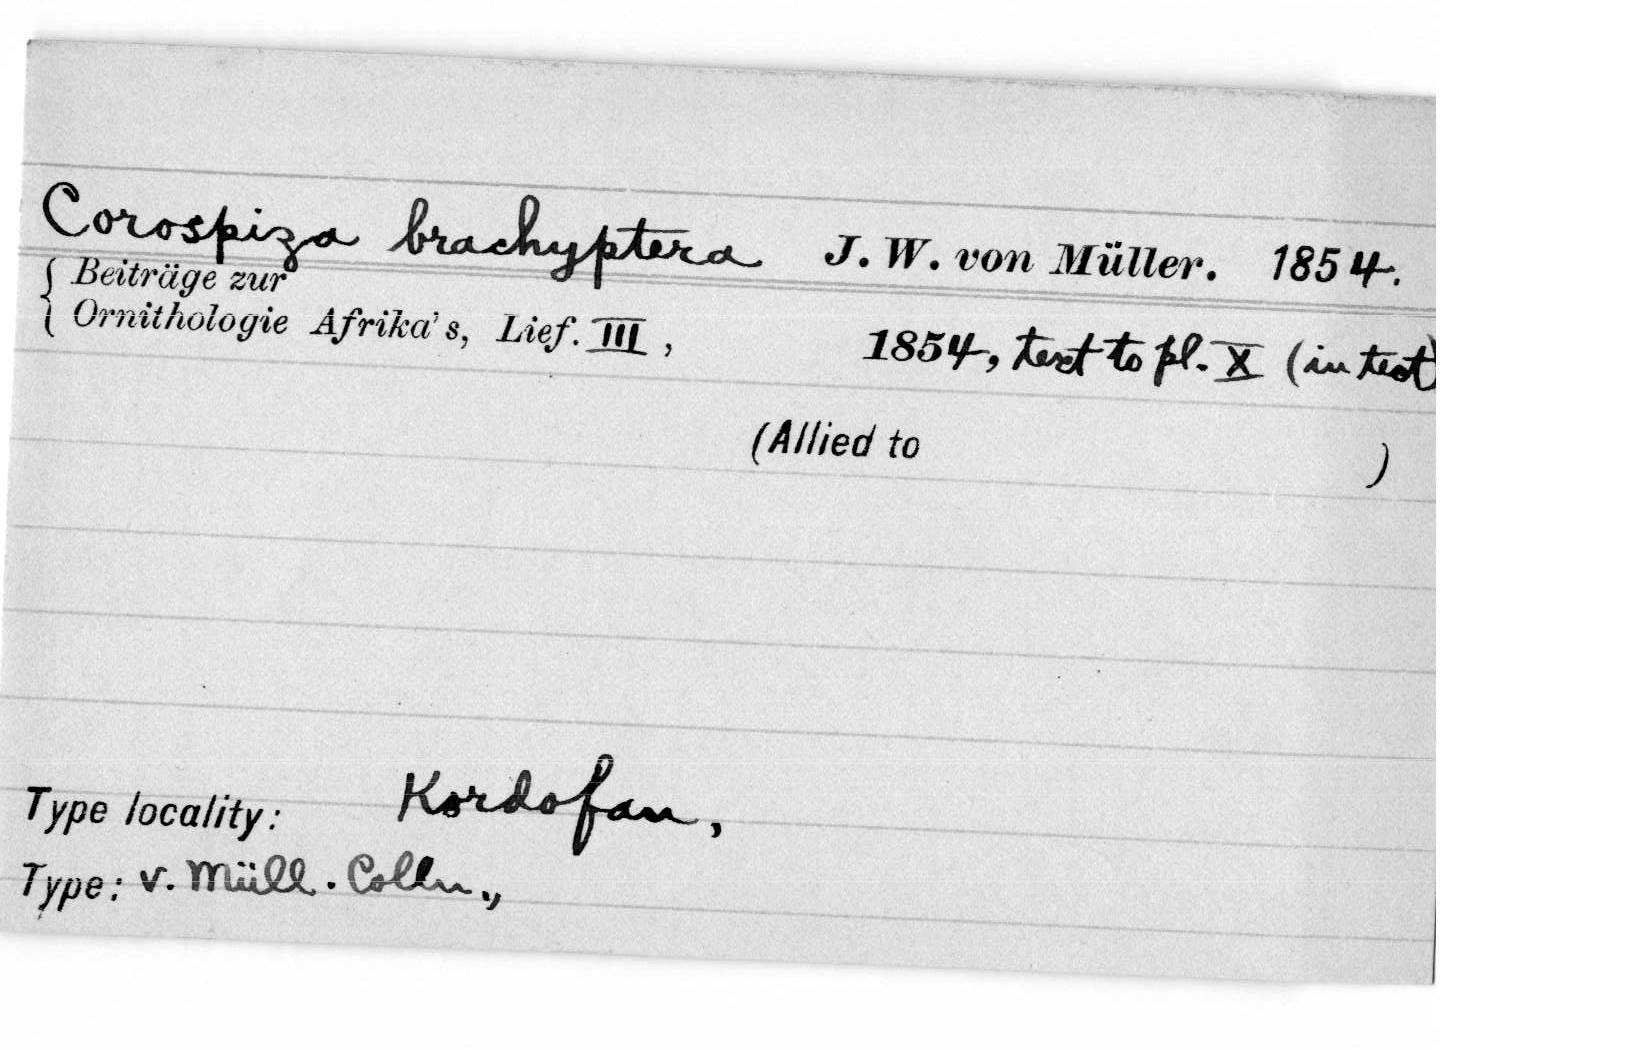 Corospiza brachyptera J. W. von Müller. 1854.
Beiträge zur
Ornithologie Afrika's, Lief. III, 1854, text to pl. X (in text)
(Allied to )
Type locality: Kordofan,
Type: v. Müll. Colln.,